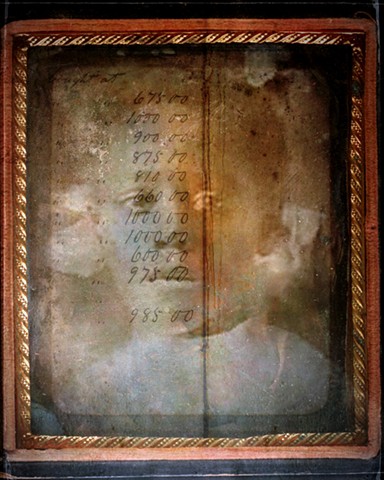 675 00
1000 00
900 00
875 00
810 00
660 00
1000 00
1000 00
600 00
975 00
985 00